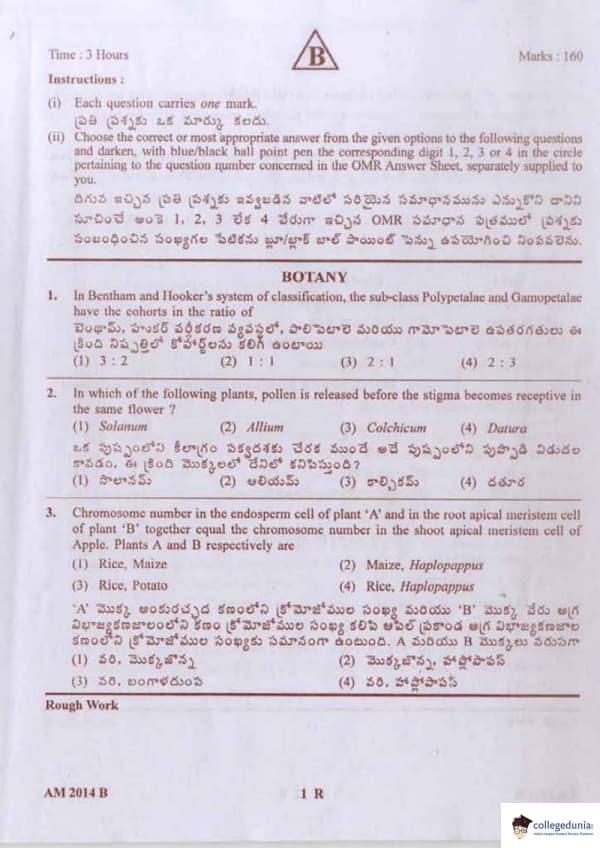 Time : 3 Hours
B
Marks : 160
Instructions :
(i) Each question carries one mark.
ప్రతి ప్రశ్నకు ఒక మార్కు కలదు.
(ii) Choose the correct or most appropriate answer from the given options to the following questions
and darken, with blue/black ball point pen the corresponding digit 1, 2, 3 or 4 in the circle
pertaining to the question number concerned in the OMR Answer Sheet, separately supplied to
you.
దిగువ ఇచ్చిన ప్రతి ప్రశ్నకు ఇవ్వబడిన వాటిలో సరియైన సమాధానమును ఎన్నుకొని దానిని
సూచించే అంకె 1, 2, 3 లేక 4 వేరుగా ఇచ్చిన OMR సమాధాన పత్రములో ప్రశ్నకు
సంబంధించిన సంఖ్యగల పేటికను బ్లూ/బ్లాక్ బాల్ పాయింట్ పెన్ను ఉపయోగించి నింపవలెను.
BOTANY
1. In Bentham and Hooker's system of classification, the sub-class Polypetalae and Gamopetalae
have the cohorts in the ratio of
బెంథామ్, హుకర్ వర్గీకరణ వ్యవస్థలో, పాలిపెటాలె మరియు గామోపెటాలె ఉపతరగతులు ఈ
క్రింది నిష్పత్తిలో కోహార్ట్‌లను కలిగి ఉంటాయి
(1) 3 : 2 (2) 1 : 1 (3) 2 : 1 (4) 2 : 3
2. In which of the following plants, pollen is released before the stigma becomes receptive in
the same flower ?
(1) Solanum (2) Allium (3) Colchicum (4) Datura
ఒక పుష్పంలోని కీలాగ్రం పక్వదశకు చేరక ముందే అదే పుష్పంలోని పుప్పొడి విడుదల
కావడం, ఈ క్రింది మొక్కలలో దేనిలో కనిపిస్తుంది?
(1) సొలానమ్ (2) ఆలియమ్ (3) కాల్చికమ్ (4) దతూర
3. Chromosome number in the endosperm cell of plant ‘A’ and in the root apical meristem cell
of plant ‘B’ together equal the chromosome number in the shoot apical meristem cell of
Apple. Plants A and B respectively are
(1) Rice, Maize (2) Maize, Haplopappus
(3) Rice, Potato (4) Rice, Haplopappus
‘A’ మొక్క అంకురచ్ఛద కణంలోని క్రోమోజోముల సంఖ్య మరియు ‘B’ మొక్క వేరు అగ్ర
విభాజ్యకణజాలంలోని కణం క్రోమోజోముల సంఖ్య కలిపి ఆపిల్ ప్రకాండ అగ్ర విభాజ్యకణజాల
కణంలోని క్రోమోజోముల సంఖ్యకు సమానంగా ఉంటుంది. A మరియు B మొక్కలు వరుసగా
(1) వరి, మొక్కజొన్న (2) మొక్కజొన్న, హాప్లోపాపస్
(3) వరి, బంగాళదుంప (4) వరి, హాప్లోపాపస్
Rough Work
AM 2014 B
1 R
collegedunia